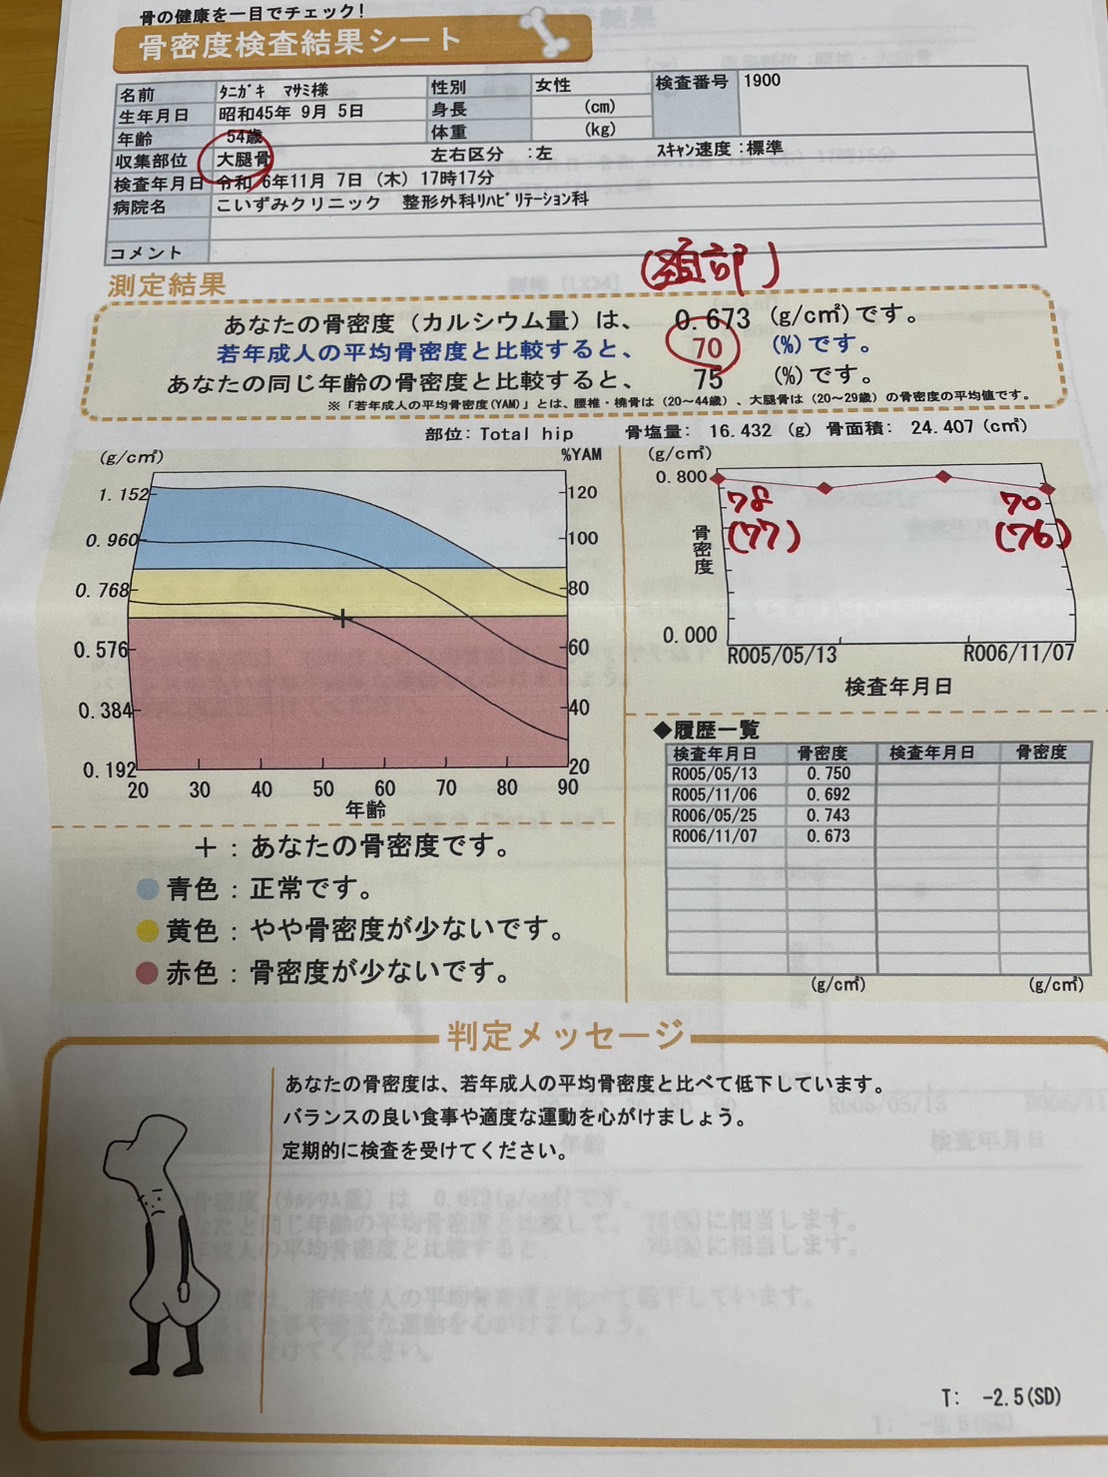 骨の健康を一目でチェック!
骨密度検査結果シート
名前 ﾀﾆｶﾞｷ ﾏｻﾐ様 性別 女性 検査番号 1900
生年月日 昭和45年 9月 5日 身長 (cm)
年齢 54歳 体重 (kg)
収集部位 大腿骨 左右区分 :左 ｽｷｬﾝ速度:標準
検査年月日 令和 6年11月 7日 (木) 17時17分
病院名 こいずみクリニック 整形外科ﾘﾊﾋﾞﾘﾃｰｼｮﾝ科
コメント
測定結果
(頚部)
あなたの骨密度(カルシウム量)は、 0.673 (g/c㎡)です。
若年成人の平均骨密度と比較すると、 70 (%)です。
あなたの同じ年齢の骨密度と比較すると、 75 (%)です。
※「若年成人の平均骨密度(YAM)」とは、腰椎・橈骨は(20〜44歳)、大腿骨は(20〜29歳)の骨密度の平均値です。
部位:Total hip 骨塩量: 16.432 (g) 骨面積: 24.407(c㎡)
(g/c㎡) %YAM
1.152 120
0.960 100
0.768 80
0.576 60
0.384 40
0.192 20
20 30 40 50 60 70 80 90
年齢
(g/c㎡)
0.800
78 70
(77) (76)
骨密度
0.000
R005/05/13 R006/11/07
検査年月日
+:あなたの骨密度です。
青色:正常です。
黄色:やや骨密度が少ないです。
赤色:骨密度が少ないです。
◆履歴一覧
検査年月日 骨密度 検査年月日 骨密度
R005/05/13 0.750
R005/11/06 0.692
R006/05/25 0.743
R006/11/07 0.673
(g/c㎡) (g/c㎡)
判定メッセージ
あなたの骨密度は、若年成人の平均骨密度と比べて低下しています。
バランスの良い食事や適度な運動を心がけましょう。
定期的に検査を受けてください。
T: -2.5(SD)